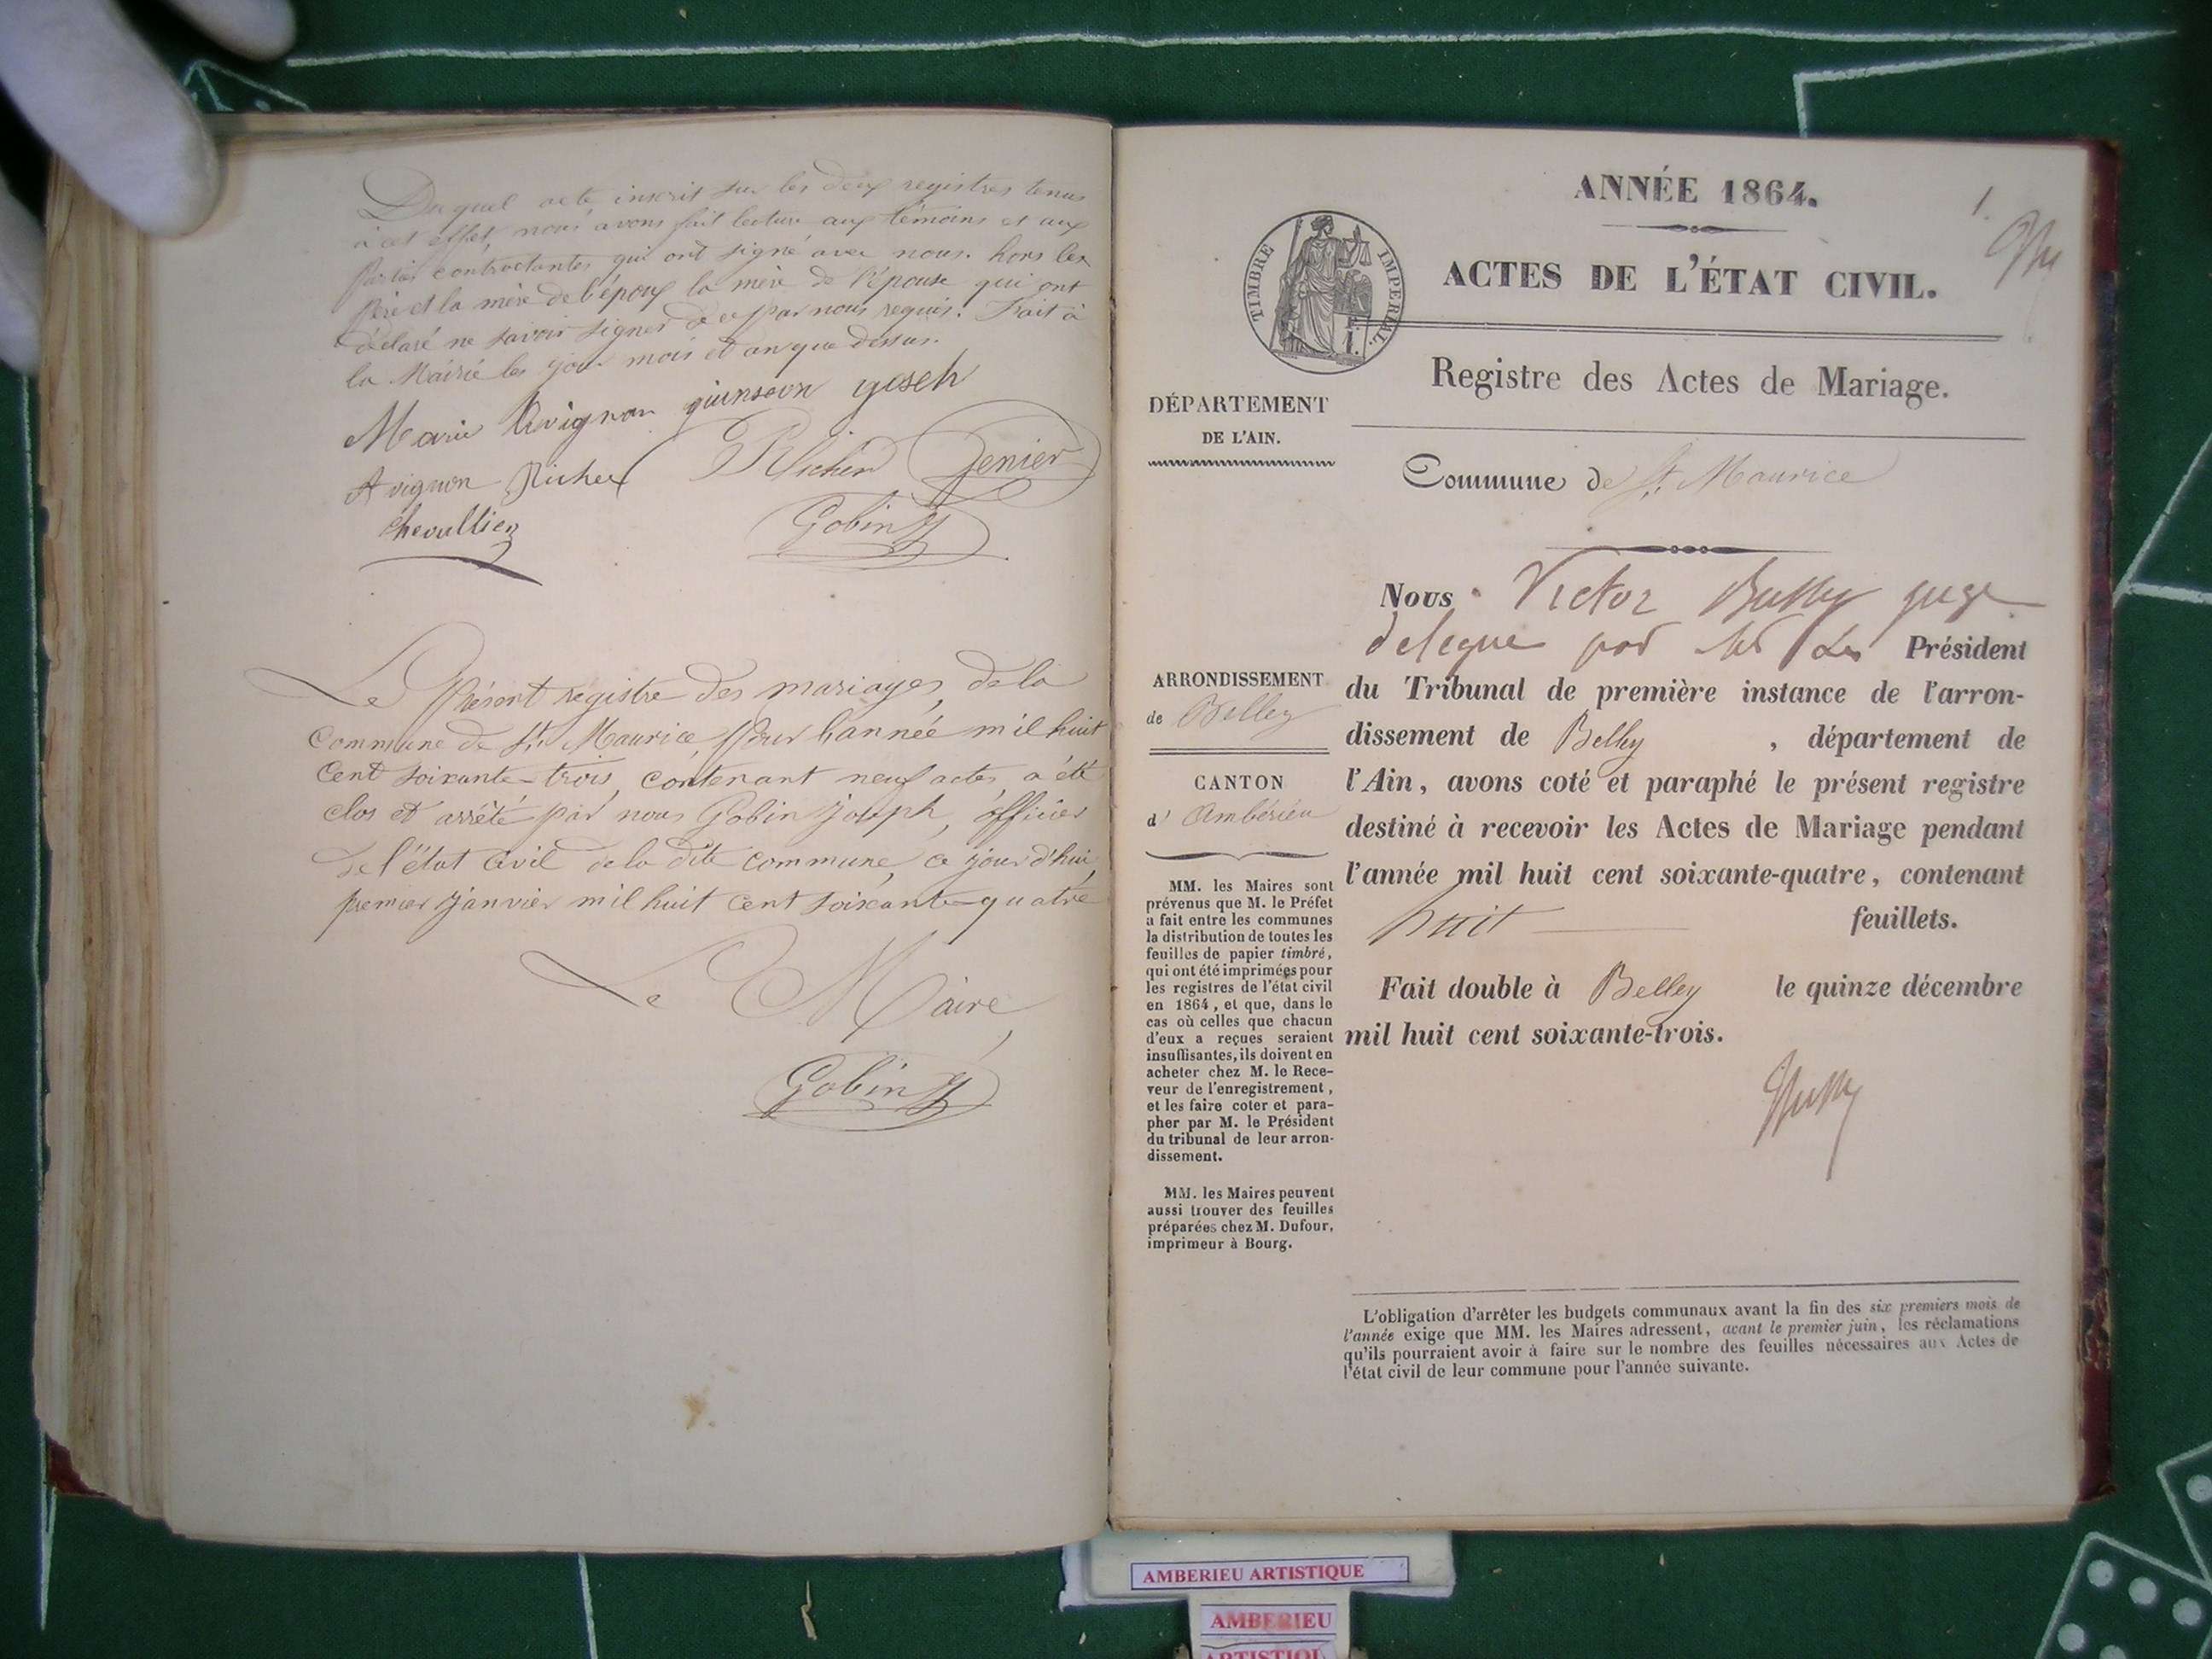 Duquel acte inscrit sur les deux registres tenus
à cet effet, nous avons fait lecture aux témoins et aux
Parties contractantes qui ont signé avec nous. hors les
Père et la mère de l'époux la mère de l'épouse qui ont
déclaré ne savoir signer de ce par nous requis. Fait à
la Mairie les jour mois et an que dessus.
Marie
Avignon Richer Richer Genier
Chevallier Gobin J
Le Présent registre des mariages, de la
Commune de St. Maurice, pour l'année mil huit
Cent soixante-trois, contenant neuf actes, a été
clos et arrêté par nous Gobin Joseph, officier
de l'état Civil de la dite commune, ce jourd'hui,
premier janvier mil huit Cent soixante-quatre
Le Maire,
Gobin J
ANNÉE 1864.
1.
TIMBRE IMPERIAL.
ACTES DE L'ÉTAT CIVIL.
Registre des Actes de Mariage.
DÉPARTEMENT
DE L'AIN.
Commune de St. Maurice
ARRONDISSEMENT
de Belley
CANTON
d' Ambérieu
MM. les Maires sont
prévenus que M. le Préfet
a fait entre les communes
la distribution de toutes les
feuilles de papier timbré,
qui ont été imprimées pour
les registres de l'état civil
en 1864, et que, dans le
cas où celles que chacun
d'eux a reçues seraient
insuffisantes, ils doivent en
acheter chez M. le Rece-
veur de l'enregistrement,
et les faire coter et para-
pher par M. le Président
du tribunal de leur arron-
dissement.
MM. les Maires peuvent
aussi trouver des feuilles
préparées chez M. Dufour,
imprimeur à Bourg.
Nous Victor juge
delegue par Président
du Tribunal de première instance de l'arron-
dissement de Belley , département de
l'Ain, avons coté et paraphé le présent registre
destiné à recevoir les Actes de Mariage pendant
l'année mil huit cent soixante-quatre, contenant
huit feuillets.
Fait double à Belley le quinze décembre
mil huit cent soixante-trois.
L'obligation d'arrêter les budgets communaux avant la fin des six premiers mois de
l'année exige que MM. les Maires adressent, avant le premier juin, les réclamations
qu'ils pourraient avoir à faire sur le nombre des feuilles nécessaires aux Actes de
l'état civil de leur commune pour l'année suivante.
AMBERIEU ARTISTIQUE
AMBERIEU